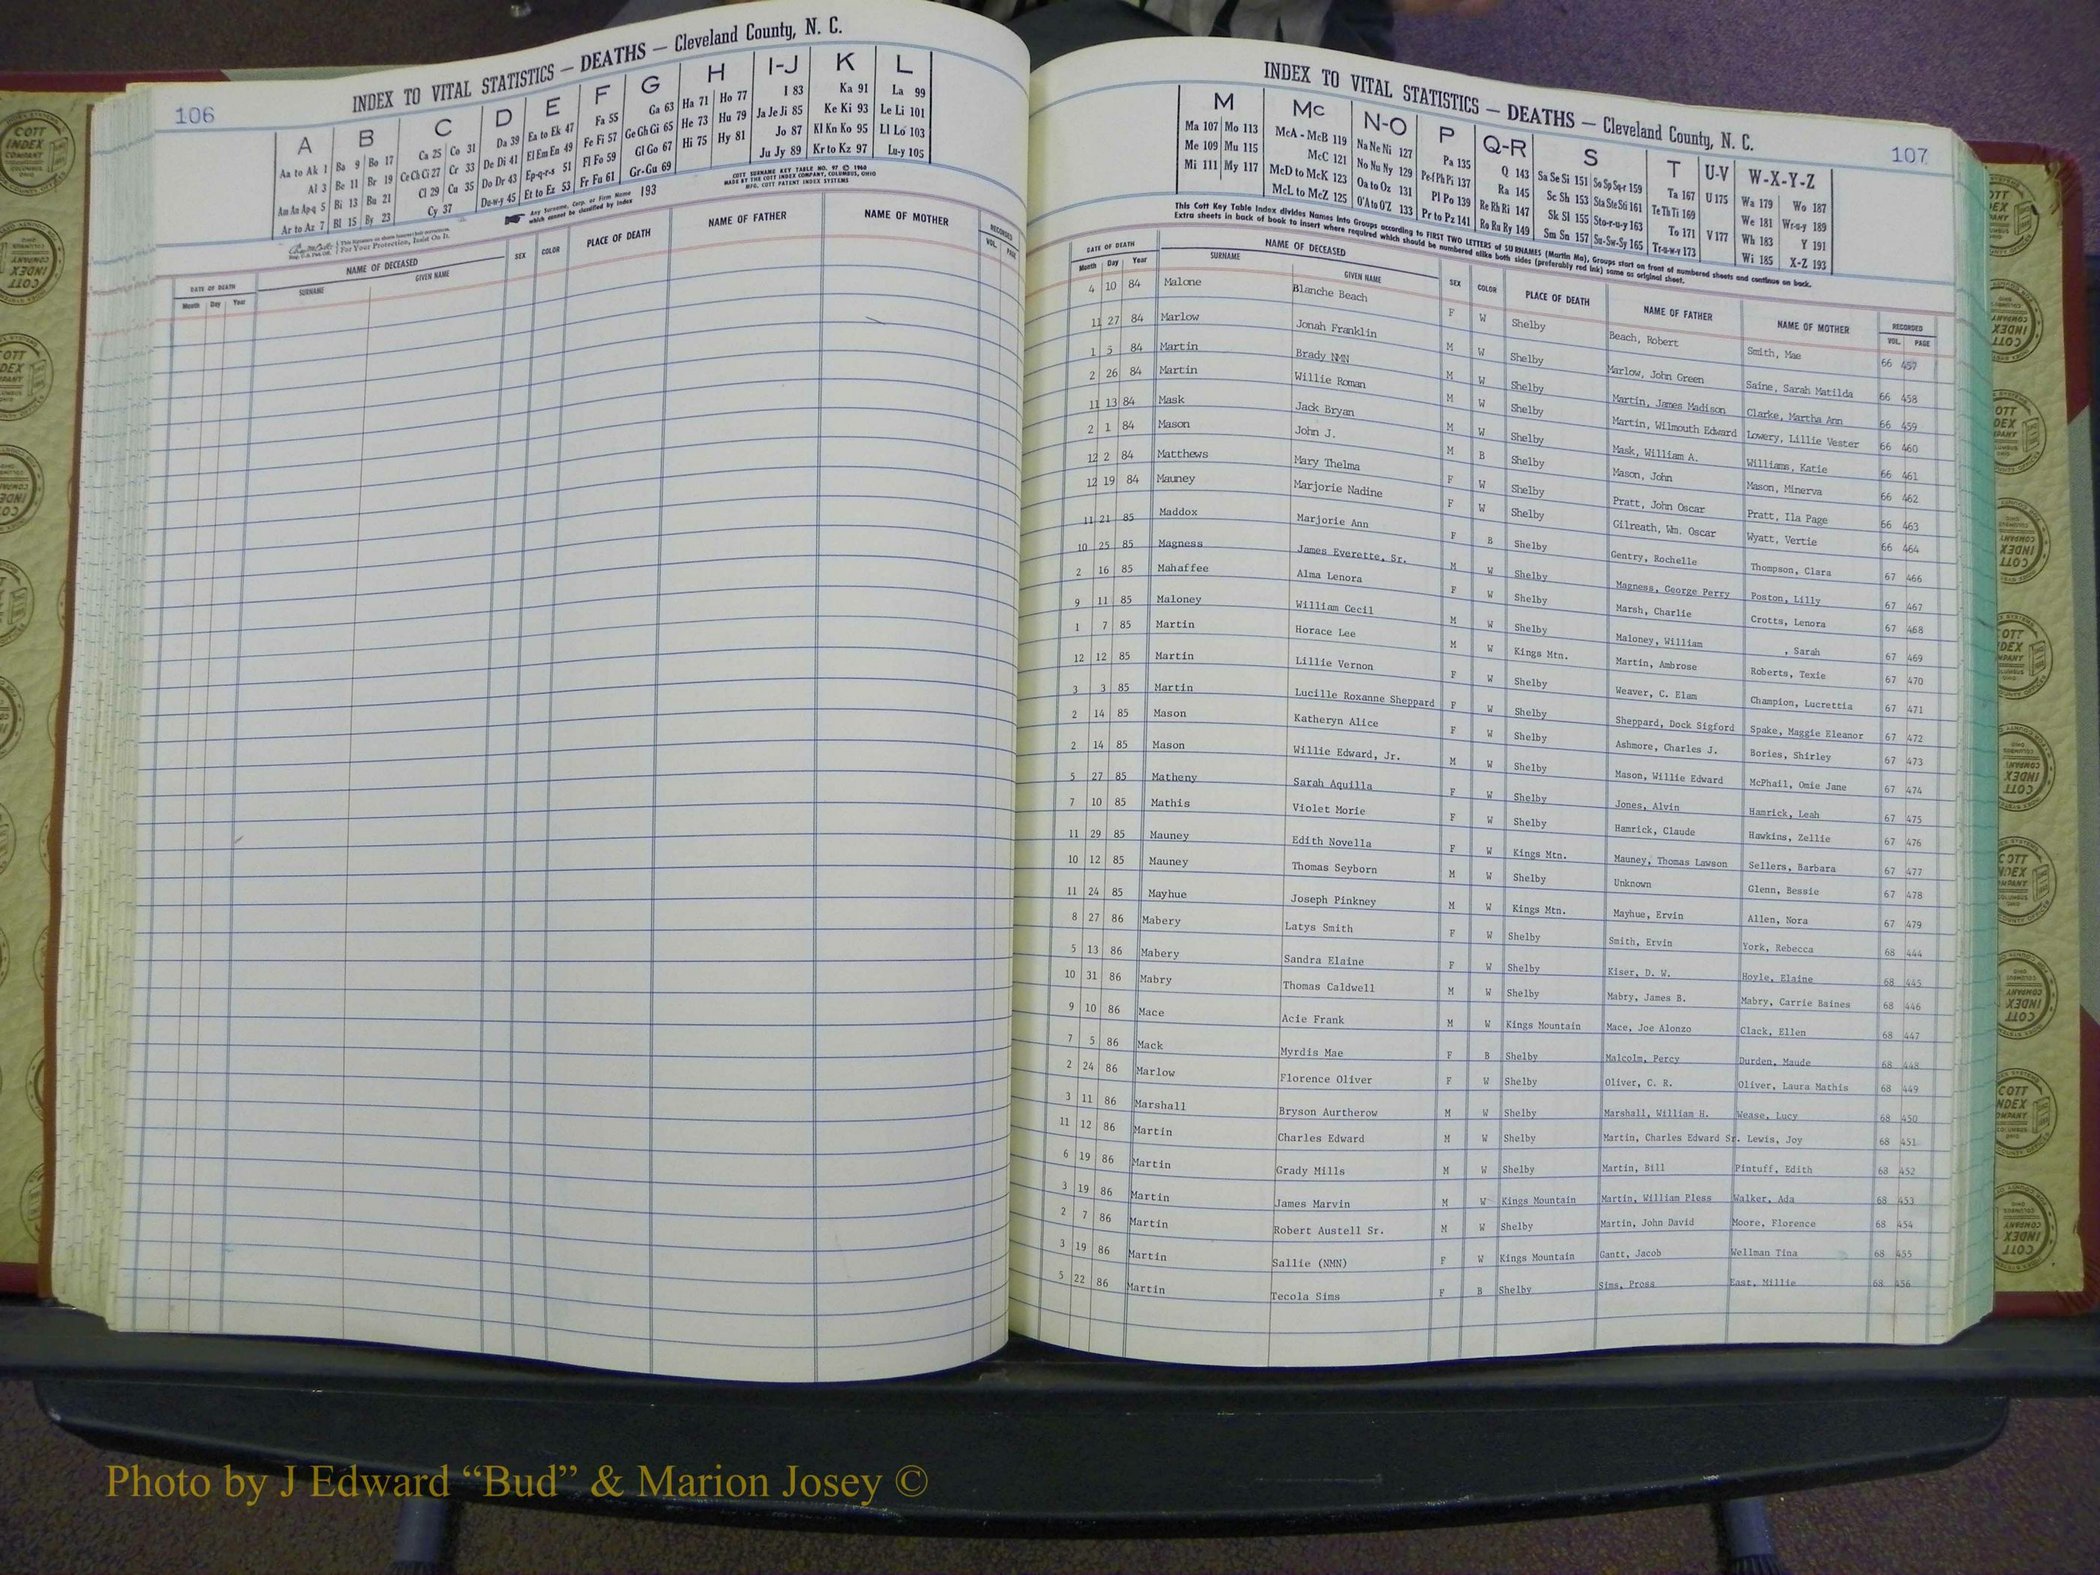 106
INDEX TO VITAL STATISTICS — DEATHS — Cleveland County, N. C.
A B C D E F G H I-J K L
Aa to Ak 1 Ba 9 Bo 17 Ca 25 Co 31 Da 39 Ea to Ek 47 Fa 55 Ga 63 Ha 71 Ho 77 I 83 Ka 91 La 99
Al 3 Be 11 Br 19 Ce Ch Ci 27 Cr 33 De Di 41 El Em En 49 Fe Fi 57 Ge Gh Gi 65 He 73 Hu 79 Ja Je Ji 85 Ke Ki 93 Le Li 101
Am An Ap-q 5 Bi 13 Bu 21 Cl 29 Cu 35 Do Dr 43 Ep-q-r-s 51 Fl Fo 59 Gl Go 67 Hi 75 Hy 81 Jo 87 Kl Kn Ko 95 Ll Lo 103
Ar to Az 7 Bl 15 By 23 Cy 37 Du-w-y 45 Et to Ez 53 Fr Fu 61 Gr-Gu 69 Ju Jy 89 Kr to Kz 97 Lu-y 105
Any Surname, Corp. or Firm Name which cannot be classified by Index 193
COTT SURNAME KEY TABLE NO. 97 © 1960
MADE BY THE COTT INDEX COMPANY, COLUMBUS, OHIO
MFG. COTT PATENT INDEX SYSTEMS
For Your Protection, Insist On It.
DATE OF DEATH NAME OF DECEASED SEX COLOR PLACE OF DEATH NAME OF FATHER NAME OF MOTHER RECORDED
Month Day Year SURNAME GIVEN NAME VOL. PAGE
107
INDEX TO VITAL STATISTICS — DEATHS — Cleveland County, N. C.
M Mc N-O P Q-R S T U-V W-X-Y-Z
Ma 107 Mo 113 McA - McB 119 Na Ne Ni 127 Pa 135 Q 143 Sa Se Si 151 So Sp Sq-r 159 Ta 167 U 175 Wa 179 Wo 187
Me 109 Mu 115 McC 121 No Nu Ny 129 Pe-f Ph Pi 137 Ra 145 Sc Sh 153 Sta Ste Sti 161 Te Th Ti 169 We 181 Wr-u-y 189
Mi 111 My 117 McD to McK 123 Oa to Oz 131 Pl Po 139 Re Rh Ri 147 Sk Sl 155 Sto-r-u-y 163 To 171 V 177 Wh 183 Y 191
McL to McZ 125 O'A to O'Z 133 Pr to Pz 141 Ro Ru Ry 149 Sm Sn 157 Su-Sw-Sy 165 Tr-u-w-y 173 Wi 185 X-Z 193
This Cott Key Table Index divides Names into Groups according to FIRST TWO LETTERS of SURNAMES (Martin Ma), Groups start on front of numbered sheets and continue on back.
Extra sheets in back of book to insert where required which should be numbered alike both sides (preferably red ink) same as original sheet.
DATE OF DEATH NAME OF DECEASED SEX COLOR PLACE OF DEATH NAME OF FATHER NAME OF MOTHER RECORDED
Month Day Year SURNAME GIVEN NAME VOL. PAGE
4 10 84 Malone Blanche Beach F W Shelby Beach, Robert Smith, Mae 66 457
11 27 84 Marlow Jonah Franklin M W Shelby Marlow, John Green Saine, Sarah Matilda 66 458
1 5 84 Martin Brady NMN M W Shelby Martin, James Madison Clarke, Martha Ann 66 459
2 26 84 Martin Willie Roman M W Shelby Martin, Wilmouth Edward Lowery, Lillie Vester 66 460
11 13 84 Mask Jack Bryan M W Shelby Mask, William A. Williams, Katie 66 461
2 1 84 Mason John J. M B Shelby Mason, John Mason, Minerva 66 462
12 2 84 Matthews Mary Thelma F W Shelby Pratt, John Oscar Pratt, Ila Page 66 463
12 19 84 Mauney Marjorie Nadine F W Shelby Gilreath, Wm. Oscar Wyatt, Vertie 66 464
11 21 85 Maddox Marjorie Ann F B Shelby Gentry, Rochelle Thompson, Clara 67 466
10 25 85 Magness James Everette, Sr. M W Shelby Magness, George Perry Poston, Lilly 67 467
2 16 85 Mahaffee Alma Lenora F W Shelby Marsh, Charlie Crotts, Lenora 67 468
9 11 85 Maloney William Cecil M W Shelby Maloney, William , Sarah 67 469
1 7 85 Martin Horace Lee M W Kings Mtn. Martin, Ambrose Roberts, Texie 67 470
12 12 85 Martin Lillie Vernon F W Shelby Weaver, C. Elam Champion, Lucrettia 67 471
3 3 85 Martin Lucille Roxanne Sheppard F W Shelby Sheppard, Dock Sigford Spake, Maggie Eleanor 67 472
2 14 85 Mason Katheryn Alice F W Shelby Ashmore, Charles J. Bories, Shirley 67 473
2 14 85 Mason Willie Edward, Jr. M W Shelby Mason, Willie Edward McPhail, Omie Jane 67 474
5 27 85 Matheny Sarah Aquilla F W Shelby Jones, Alvin Hamrick, Leah 67 475
7 10 85 Mathis Violet Morie F W Shelby Hamrick, Claude Hawkins, Zellie 67 476
11 29 85 Mauney Edith Novella F W Kings Mtn. Mauney, Thomas Lawson Sellers, Barbara 67 477
10 12 85 Mauney Thomas Seyborn M W Shelby Unknown Glenn, Bessie 67 478
11 24 85 Mayhue Joseph Pinkney M W Kings Mtn. Mayhue, Ervin Allen, Nora 67 479
8 27 86 Mabery Latys Smith F W Shelby Smith, Ervin York, Rebecca 68 444
5 13 86 Mabery Sandra Elaine F W Shelby Kiser, D. W. Hoyle, Elaine 68 445
10 31 86 Mabry Thomas Caldwell M W Shelby Mabry, James B. Mabry, Carrie Baines 68 446
9 10 86 Mace Acie Frank M W Kings Mountain Mace, Joe Alonzo Clack, Ellen 68 447
7 5 86 Mack Myrdis Mae F B Shelby Malcolm, Percy Durden, Maude 68 448
2 24 86 Marlow Florence Oliver F W Shelby Oliver, C. R. Oliver, Laura Mathis 68 449
3 11 86 Marshall Bryson Aurtherow M W Shelby Marshall, William H. Wease, Lucy 68 450
11 12 86 Martin Charles Edward M W Shelby Martin, Charles Edward Sr. Lewis, Joy 68 451
6 19 86 Martin Grady Mills M W Shelby Martin, Bill Pintuff, Edith 68 452
3 19 86 Martin James Marvin M W Kings Mountain Martin, William Pless Walker, Ada 68 453
2 7 86 Martin Robert Austell Sr. M W Shelby Martin, John David Moore, Florence 68 454
3 19 86 Martin Sallie (NMN) F W Kings Mountain Gantt, Jacob Wellman Tina 68 455
5 22 86 Martin Tecola Sims F B Shelby Sims, Pross East, Millie 68 456
Photo by J Edward “Bud” & Marion Josey ©